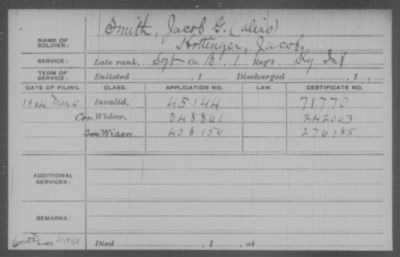 Smith, Jacob G. (alias)
NAME OF SOLDIER: Kottinger, Jacob.
SERVICE: Late rank, Sgt Co B, 1 Reg't Ky Inf
TERM OF SERVICE: Enlisted , 1 Discharged , 1
DATE OF FILING. CLASS. APPLICATION NO. LAW. CERTIFICATE NO.
Invalid, 45144 71770
Con Widow, 348861 242003
Widow 408150 276185
ADDITIONAL SERVICES:
REMARKS:
Died , 1 , at